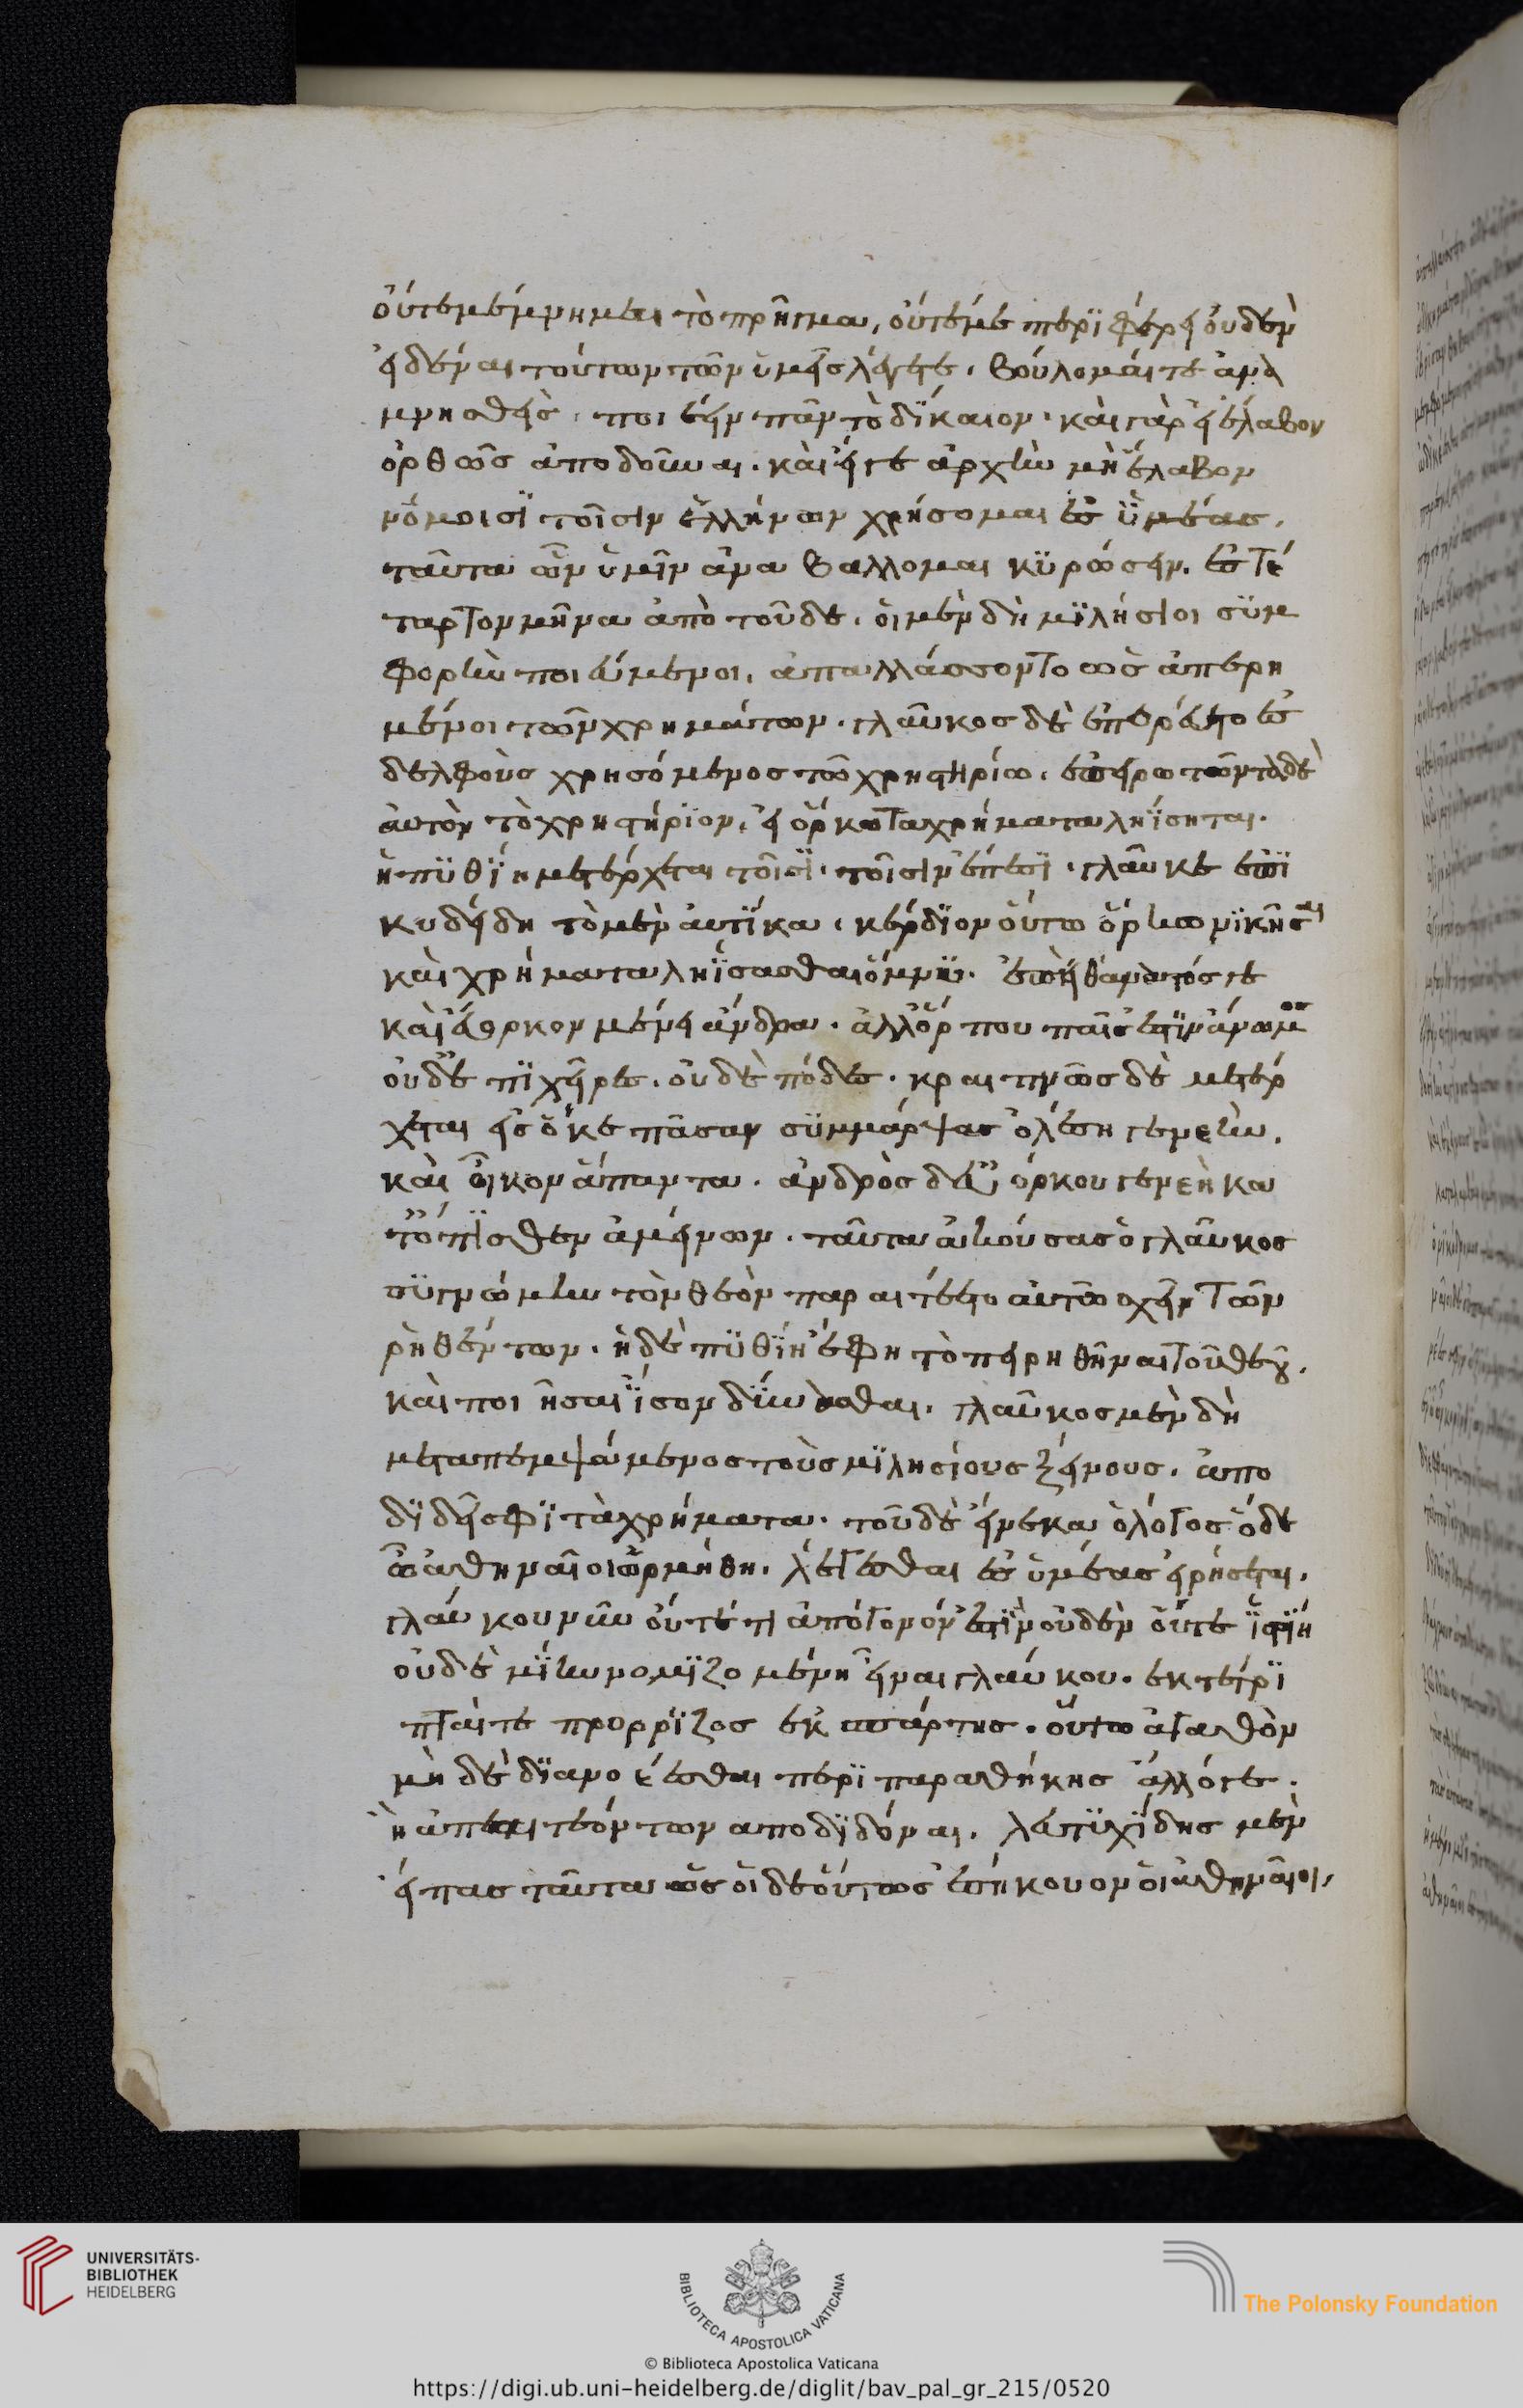 οὔτε μέμνημαι τὸ πρῆγμα, οὔτέ με περϊφέρει οὐδὲν
εἰδέναι τούτων τῶν ὑμεῖς λέγετε. βούλομαί τε ἀνα
μνησθεὶς ποιέειν πᾶν τὸ δΐκαιον. καὶ γὰρ εἰ ἔλαβον
ὀρθῶς ἀποδοῦναι. καὶ εἴ γε ἀρχὴν μὴ ἔλαβον
νόμοισϊ τοῖσιν ἑλλήνων χρήσομαι ἐς ὑμέας.
ταῦτα ὦν ὑμῖν ἀναβάλλομαι κϋρώσειν. ἐς τέ
ταρτον μῆνα ἀπὸ τοῦδε. οἱ μὲν δὴ μϊλήσιοι συμ
φορὴν ποιεύμενοι, ἀπαλλάσσοντο ὡς ἀπερη
μένοι τῶν χρημάτων. γλαῦκος δὲ ἐπορεύετο ἐς
δελφοὺς χρησόμενος τῶ χρηστηρίω. ἐπειρωτῶντα δὲ
αὐτὸν τὸ χρηστήρϊον, εἰ ὅρκω τὰ χρήματα ληΐσηται.
ἡ πϋθΐη μετέρχεται τοῖσϊ. τοῖσιν ἔπεσϊ. γλαῦκε ἐπϊ
κυδείδη τὸ μὲν αὐτΐκα κέρδϊον οὕτω ὅρκω νϊκῆσαι
καὶ χρήματα ληΐσασθαι ὄμνϋ. ἐπεὶ θάνατός γε
καὶ εὔορκον μένει ἄνδρα. ἀλλ' ὅρκου παῖς ἐστϊν ἀνώνυμος
οὐδ' ἔπϊ χεῖρες. οὐδὲ πόδες. κραιπνῶς δὲ μετέρ
χεται εἰσόκε πᾶσαν συμμάρψας ὀλέση γενεὴν.
καὶ οἶκον ἅπαντα. ἀνδρὸς δ' εὐόρκου γενεὴ κα
τόπϊσθεν ἀμείνων. ταῦτα ἀκούσας ὁ γλαῦκος
συγγνώμην τὸν θεὸν παραιτέετο αὐτῶ σχεῖν τῶν
ῥηθέντων. ἡ δὲ πϋθΐη ἔφη τὸ πειρηθῆναι τοῦ θεοῦ,
καὶ ποιῆσαι ἴσον δΰνασθαι. γλαῦκος μὲν δὴ
μεταπεμψάμενος τοὺς μϊλησίους ξείνους. ἀπο
δϊδεῖ σφϊ τὰ χρήματα. τοῦ δὲ εἵνεκα ὁ λόγος ὅδε
ὦ ἀθηναῖοι ὡρμήθη. λέγεσθαι ἐς ὑμέας εἰρήσεται.
γλαύκου νῦν οὔτέ τι ἀπόγονόν ἐστϊν οὐδὲν οὔτε ἱστΐη
οὐδεμΐην νομϊζομένη εἶναι γλαύκου. ἐκτέτρϊ
πταί τε πρόρρϊζος ἐκ σπάρτης. οὕτω ἀγαθὸν
μὴ δὲ δϊανοέεσθαι περϊ παραθήκης ἄλλό γε.
ἢ ἀπαιτεόντων αποδϊδόναι. λευτϋχΐδης μὲν
εἴπας ταῦτα ὥς οἱ δε οὕτως ἐσήκουον οἱ ἀθηναῖοι,
UNIVERSITÄTS-
BIBLIOTHEK
HEIDELBERG
BIBLIOTECA APOSTOLICA VATICANA
The Polonsky Foundation
© Biblioteca Apostolica Vaticana
https://digi.ub.uni-heidelberg.de/diglit/bav_pal_gr_215/0520